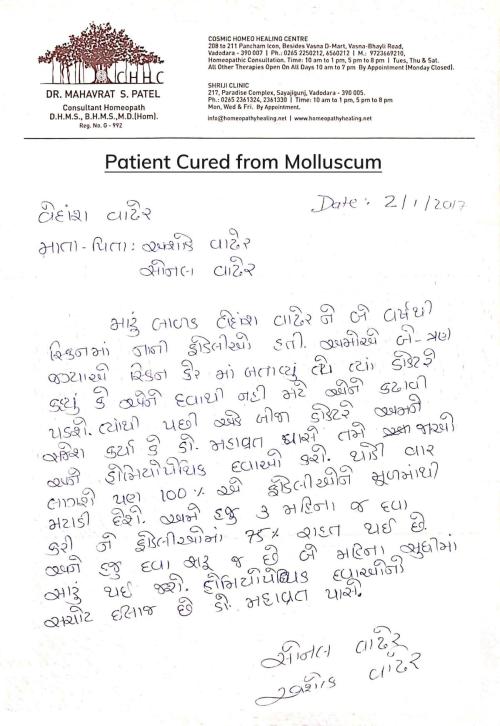 CHHC
DR. MAHAVRAT S. PATEL
Consultant Homeopath
D.H.M.S., B.H.M.S.,M.D.(Hom).
Reg. No. G - 992
COSMIC HOMEO HEALING CENTRE
208 to 211 Pancham Icon, Besides Vasna D-Mart, Vasna-Bhayli Road,
Vadodara - 390 007 | Ph.: 0265 2250212, 6560212 | M.: 9723669210,
Homeopathic Consultation. Time: 10 am to 1 pm, 5 pm to 8 pm | Tues, Thu & Sat.
All Other Therapies Open On All Days 10 am to 7 pm By Appointment (Monday Closed).
SHRIJI CLINIC
217, Paradise Complex, Sayajigunj, Vadodara - 390 005.
Ph.: 0265 2361324, 2361330 | Time: 10 am to 1 pm, 5 pm to 8 pm
Mon, Wed & Fri. By Appointment.
info@homeopathyhealing.net | www.homeopathyhealing.net
Patient Cured from Molluscum
Date: 2/1/2017
વેદાંશ વાઢેર
માતા - પિતા: અશોક વાઢેર
સોનલ વાઢેર
મારું બાળક વેદાંશ વાઢેર ને બે વર્ષથી
સ્કિનમાં નાની ફોડલીઓ હતી. અમોએ બે-ત્રણ
જગ્યાએ સ્કિન કેર માં બતાવ્યું તો ત્યાં ડોક્ટરે
કહ્યું કે એને દવાથી નહી મટે એને કઢાવી
પડશે. ત્યાંથી પછી એક બીજા ડોક્ટરે અમને
સજેશ કર્યા કે ડો. મહાવ્રત પાસે તમે જાઓ
અને હોમિયોપેથિક દવાઓ કરો. થોડી વાર
લાગશે પણ 100% એ ફોડલીઓને મૂળમાંથી
મટાડી દેશે. અમે હજુ 3 મહિના જ દવા
કરી ને ફોડલીઓમાં 75% રાહત થઈ છે.
અને હજુ દવા શરૂ જ છે બે મહિના સુધીમાં
સારું થઈ જશે. હોમિયોપેથિક દવાઓનો
સચોટ ઈલાજ છે ડો. મહાવ્રત પાસે.
સોનલ વાઢેર
અશોક વાઢેર